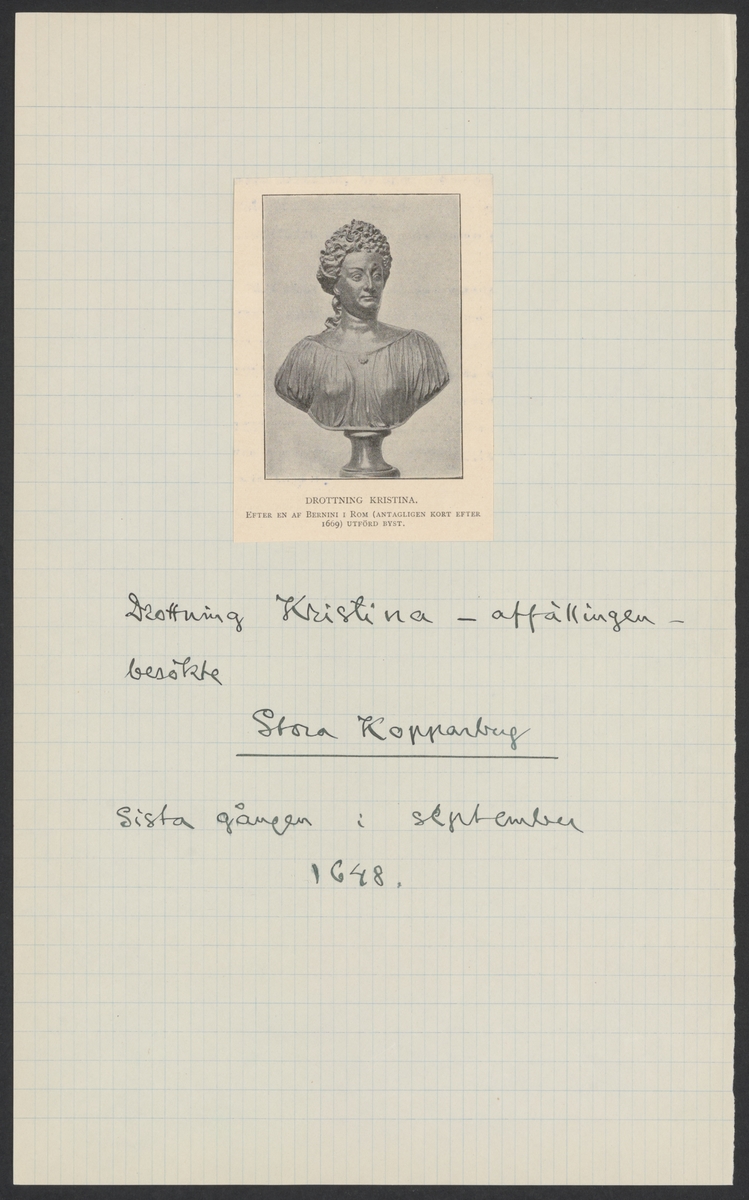 DROTTNING KRISTINA.
EFTER EN AF BERNINI I ROM (ANTAGLIGEN KORT EFTER
1669) UTFÖRD BYST.
Drottning Kristina – affällingen –
besökte
Stora Kopparberg
Sista gången i september
1648.